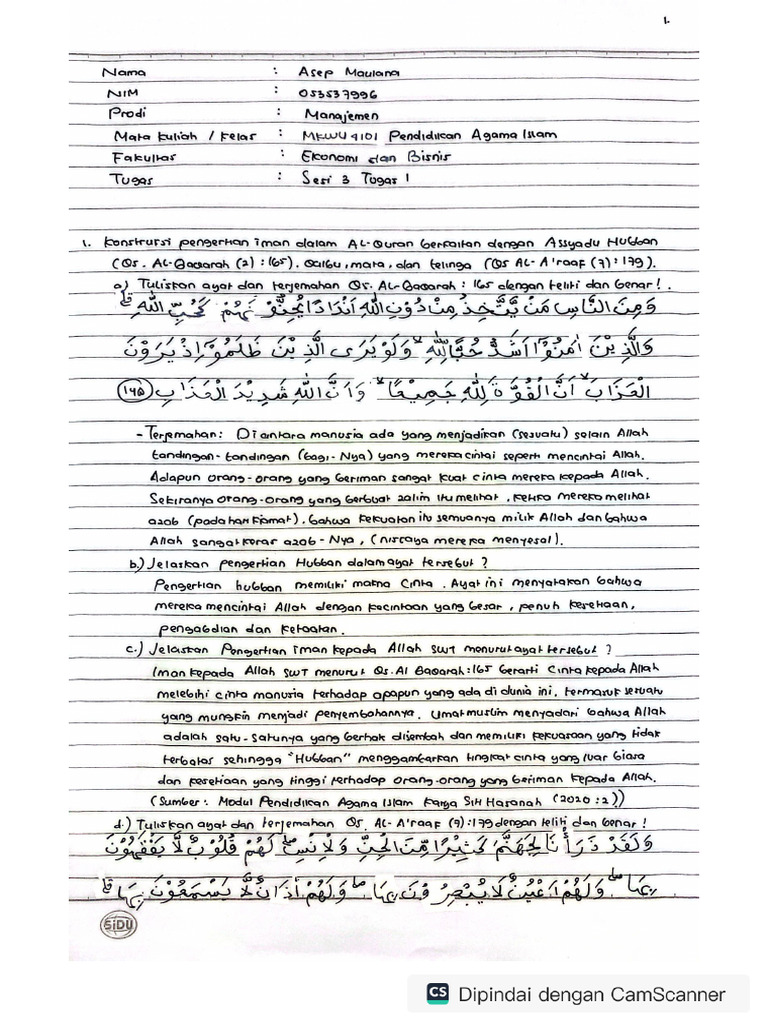 1.
Nama : Asep Maulana
NIM : 053537996
Prodi : Manajemen
Mata kuliah / Kelas : MKWU 4101 Pendidikan Agama Islam
Fakultas : Ekonomi dan Bisnis
Tugas : Sesi 3 Tugas 1
1. Konstruksi pengertian iman dalam AL-Quran berkaitan dengan Assyadu Hubban
(Qs. AL-Baqarah (2) : 165). Qalbu, mata, dan telinga (QS AL-A'raaf (7) : 179).
a.) Tuliskan ayat dan terjemahan Qs. AL-Baqarah : 165 dengan teliti dan benar !.
وَمِنَ النَّاسِ مَنْ يَّتَّخِذُ مِنْ دُوْنِ اللّٰهِ اَنْدَادًا يُّحِبُّوْنَهُمْ كَحُبِّ اللّٰهِ ۗ
وَالَّذِيْنَ اٰمَنُوْٓا اَشَدُّ حُبًّا لِّلّٰهِ ۗ وَلَوْ يَرَى الَّذِيْنَ ظَلَمُوْٓا اِذْ يَرَوْنَ
الْعَذَابَۙ اَنَّ الْقُوَّةَ لِلّٰهِ جَمِيْعًاۙ وَّاَنَّ اللّٰهَ شَدِيْدُ الْعَذَابِ (١٦٥)
- Terjemahan : Di antara manusia ada yang menjadikan (sesuatu) selain Allah
tandingan-tandingan (bagi-Nya) yang mereka cintai seperti mencintai Allah.
Adapun orang-orang yang beriman sangat kuat cinta mereka kepada Allah.
Sekiranya orang-orang yang berbuat zalim itu melihat , ketika mereka melihat
azab (pada hari kiamat) , bahwa kekuatan itu semuanya milik Allah dan bahwa
Allah sangat keras azab-Nya , (niscaya mereka menyesal).
b.) Jelaskan pengertian Hubban dalam ayat tersebut ?
Pengertian hubban memiliki makna Cinta . Ayat ini menyatakan bahwa
mereka mencintai Allah dengan kecintaan yang besar , penuh kesetiaan,
pengabdian dan ketaatan.
c.) Jelaskan Pengertian iman kepada Allah SWT menurut ayat tersebut ?
Iman kepada Allah SWT menurut Qs. Al Baqarah : 165 berarti Cinta kepada Allah
melebihi cinta manusia terhadap apapun yang ada di dunia ini, termasuk sesuatu
yang mungkin menjadi penyembahannya. Umat muslim menyadari bahwa Allah
adalah satu-satunya yang berhak disembah dan memiliki kekuasaan yang tidak
terbatas sehingga "Hubban" menggambarkan tingkat cinta yang luar biasa
dan kesetiaan yang tinggi terhadap orang-orang yang beriman kepada Allah.
(Sumber : Modul Pendidikan Agama Islam Karya Siti Hasanah (2020 : 2))
d.) Tuliskan ayat dan terjemahan QS. AL-A'raaf (7) : 179 dengan teliti dan benar !
وَلَقَدْ ذَرَأْنَا لِجَهَنَّمَ كَثِيْرًا مِّنَ الْجِنِّ وَالْاِنْسِۖ لَهُمْ قُلُوْبٌ لَّا يَفْقَهُوْنَ
بِهَاۖ وَلَهُمْ اَعْيُنٌ لَّا يُبْصِرُوْنَ بِهَاۖ وَلَهُمْ اٰذَانٌ لَّا يَسْمَعُوْنَ بِهَاۗ
SiDU
CS Dipindai dengan CamScanner